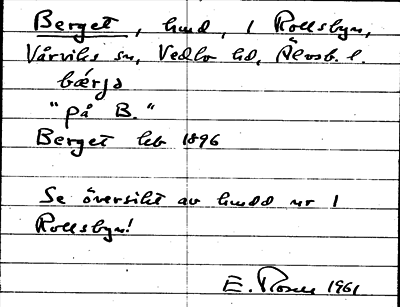 Berget, hmd, 1 Rollsbyn,
Vårviks sn, Vedbo hd, Älvsb. l.
bǽrjə
"på B."
Berget hb 1896
Se översikt av hmdd nr 1
Rollsbyn!
E. Rosell 1961